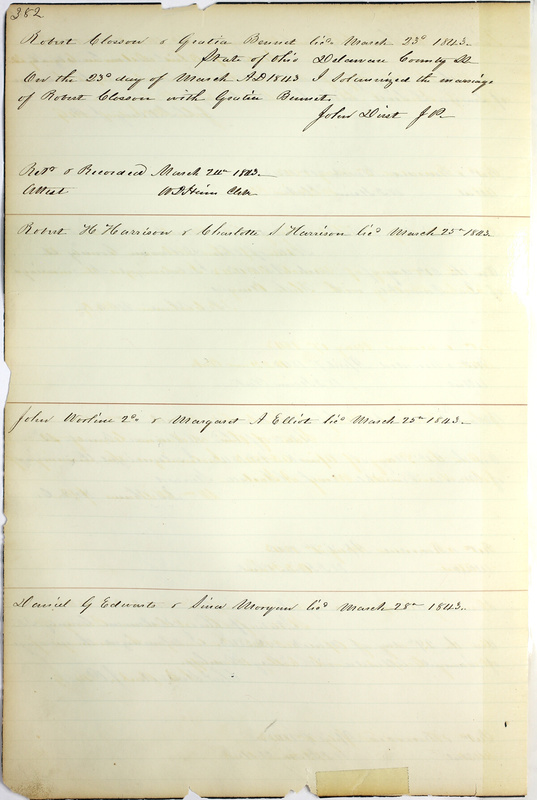 382
Robert Closson & Gratia Bennet lisd March 23d 1843.
State of Ohio Delaware County SS
On the 23d day of March AD 1843 I solemnized the marriage
of Robert Closson with Gratia Bennet.
John Dirst JP.
Retd & Recorded March 24th 1843.
Attest Clerk
Robert H Harrison & Charlotte S Harrison lisd March 25th 1843
John Worline 2d & Margaret A Elliot lisd March 25th 1843.
Daniel G Edwards & Sina Morgan lisd March 28th 1843.